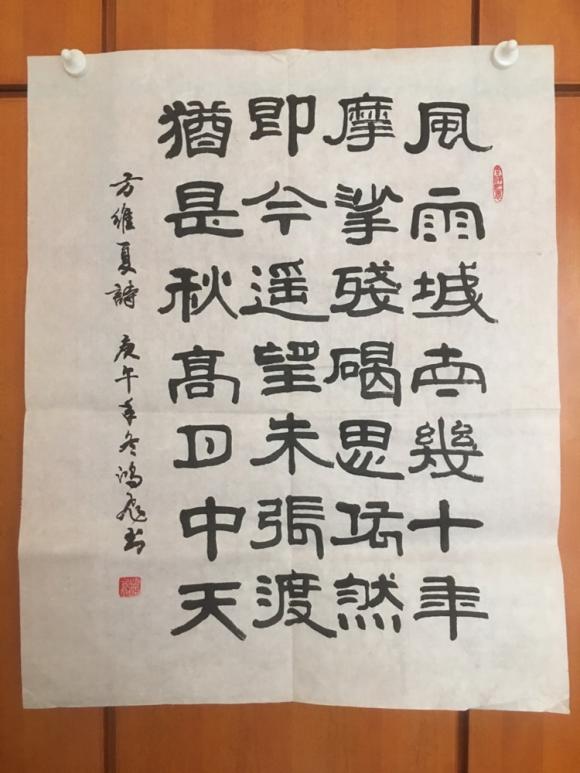 風雨城南幾十年
摩挲殘碣思依然
即今遥望朱張渡
猶是秋高月中天
方維夏詩 庚午年冬鴻飛书